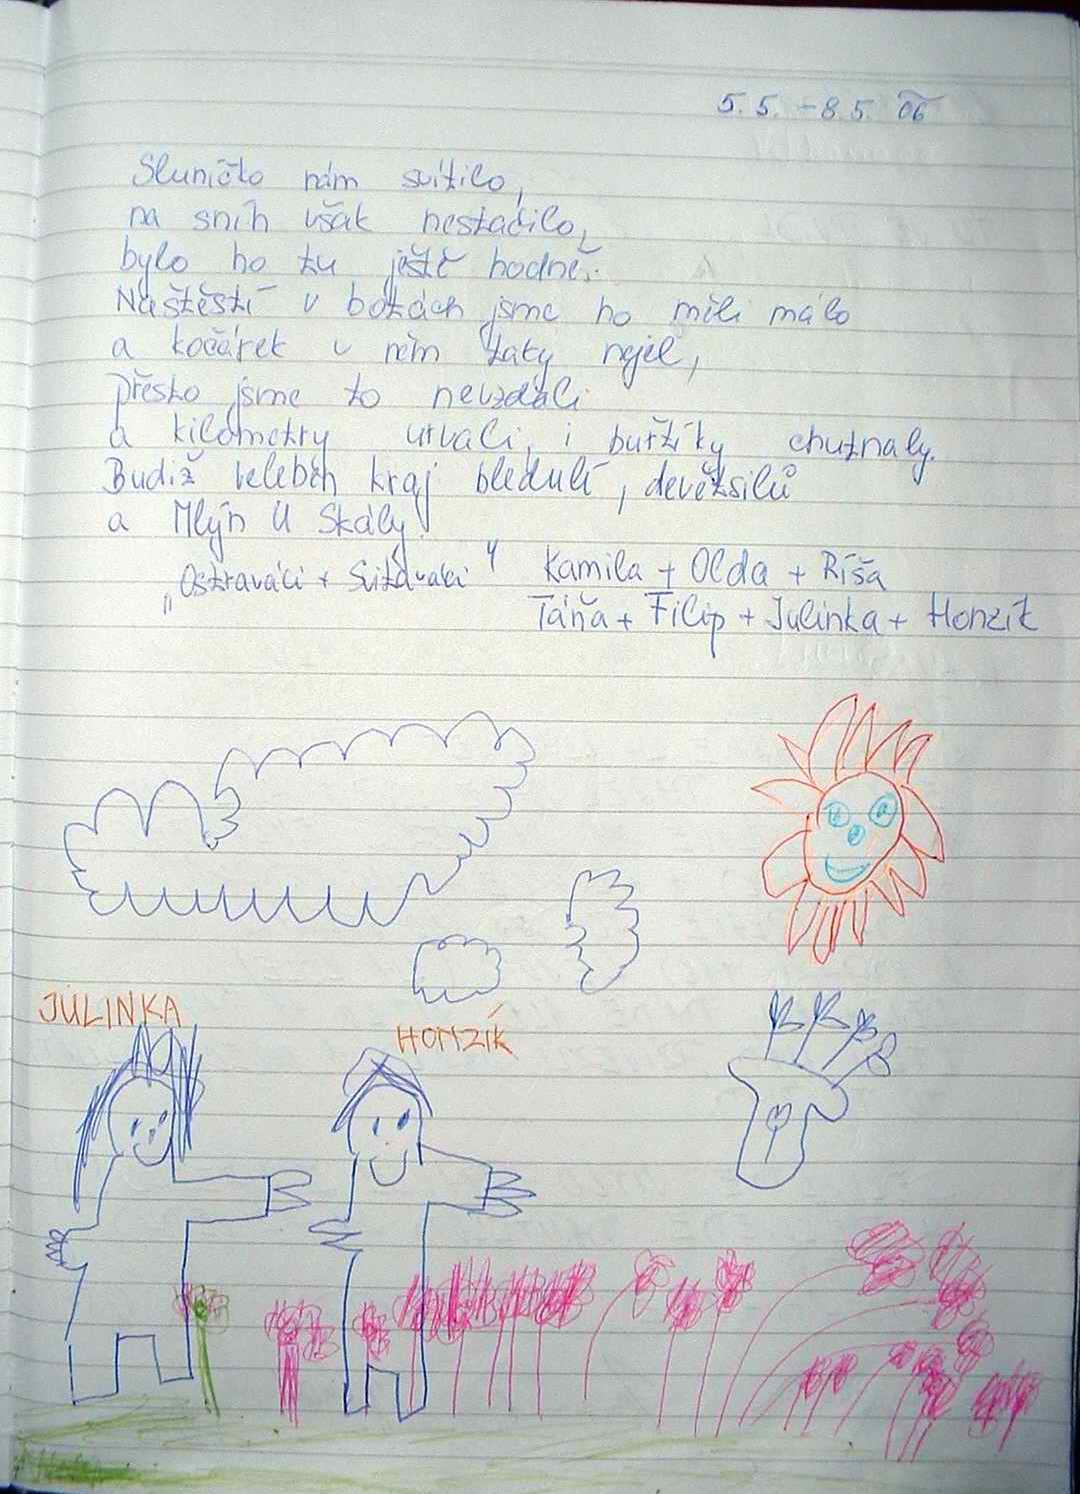 5.5. - 8.5. 06
Sluníčko nám svítilo,
na sníh však nestačilo,
bylo ho tu ještě hodně.
Naštěstí v botách jsme ho měli málo
a kočárek v něm taky nejel,
přesto jsme to nevzdali
a kilometry urvali, i buřtíky chutnaly.
Budiž veleben kraj bledulí, devětsilů
a Mlýn U Skály!
„Ostraváci + Svitáváci" Kamila + Olda + Ríša
Táňa + Filip + Julinka + Honzík
JULINKA
HONZÍK